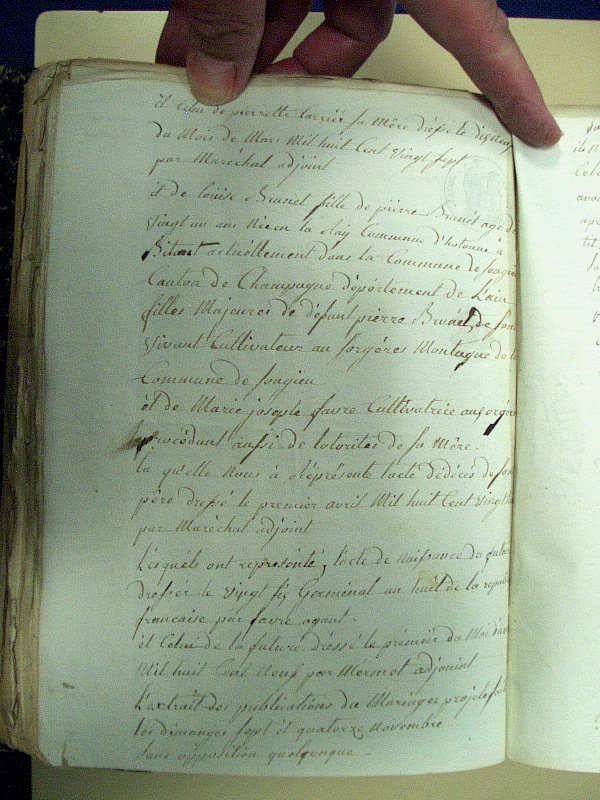 et Celui de pierrette Carrier sa Mère dréssé le dix neuf
du Mois de Mars Mil huit Cent Vingt sept
par Maréchal adjoint
Et de Louise Brunet fille de pierre Brunet agé de
Vingt un ans Née en la Commune d'hotonne à
actuellement dans la Commune de songieu
Canton de Champagne département de L'ain
filles Majeures de défunt pierre Brunet, de son
Vivant Cultivateur au forgères Montagne de la
Commune de songieu
et de Marie josepte favre Cultivatrice au forgères
procédant aussi de lotorites de sa Mère
la qu'elle Nous à représente lacte dédécés de son
père dressé le premier avril Mil huit Cent Vingt
par Maréchal adjoint
Lesquéls ont représenté, lacte de Naissance du futur
dresser le Vingt six Germinal an huit de la republi
francaise par favre agent
et Celui de la future dressé le premier du Moi d'
Mil huit Cent Neuf par Mermet adjoint
L'extrait des publications du Mariages projeté
les démanges sept et quatorze Novembre
sans opposition quelqonque